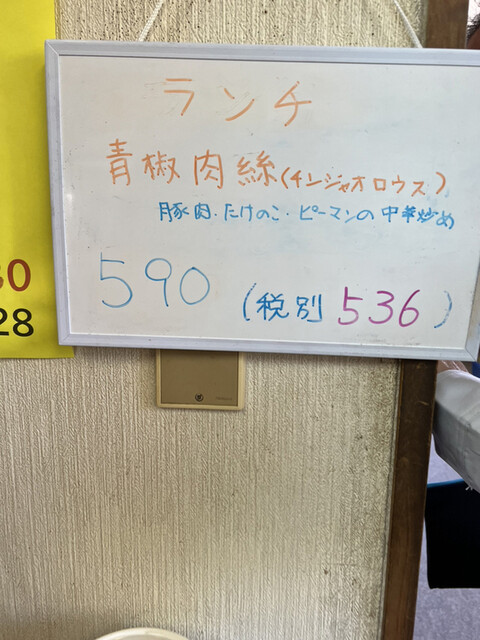 ランチ
青椒肉絲(チンジャオロウス)
豚肉・たけのこ・ピーマンの中華炒め
590 (税別 536)
30
28